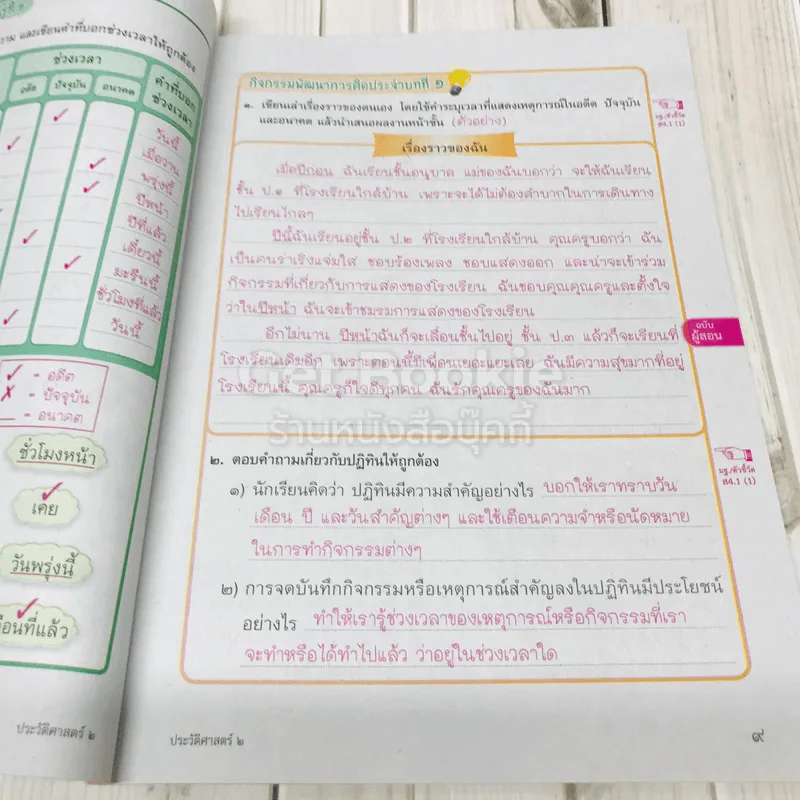 าม และเขียนคำที่บอกช่วงเวลาให้ถูกต้อง
ช่วงเวลา
อดีต ปัจจุบัน อนาคต
คำที่บอก
ช่วงเวลา
วันนี้
เมื่อวาน
พรุ่งนี้
ปีหน้า
ปีที่แล้ว
เดี๋ยวนี้
มะรืนนี้
ชั่วโมงที่แล้ว
วันนี้
✓ - อดีต
✗ - ปัจจุบัน
__ - อนาคต
ชั่วโมงหน้า
เคย
วันพรุ่งนี้
ดือนที่แล้ว
ประวัติศาสตร์ ๒
กิจกรรมพัฒนาการคิดประจำบทที่ ๑
๑. เขียนเล่าเรื่องราวของตนเอง โดยใช้คำระบุเวลาที่แสดงเหตุการณ์ในอดีต ปัจจุบัน
และอนาคต แล้วนำเสนอผลงานหน้าชั้น (ตัวอย่าง)
มฐ./ตัวชี้วัด
ส4.1 (1)
เรื่องราวของฉัน
เมื่อปีก่อน ฉันเรียนชั้นอนุบาล แม่ของฉันบอกว่า จะให้ฉันเรียน
ชั้น ป.๑ ที่โรงเรียนใกล้บ้าน เพราะจะได้ไม่ต้องลำบากในการเดินทาง
ไปเรียนไกลๆ
ปีนี้ฉันเรียนอยู่ชั้น ป.๒ ที่โรงเรียนใกล้บ้าน คุณครูบอกว่า ฉัน
เป็นคนร่าเริงแจ่มใส ชอบร้องเพลง ชอบแสดงออก และน่าจะเข้าร่วม
กิจกรรมที่เกี่ยวกับการแสดงของโรงเรียน ฉันขอบคุณคุณครูและตั้งใจ
ว่าในปีหน้า ฉันจะเข้าชมรมการแสดงของโรงเรียน
อีกไม่นาน ปีหน้าฉันก็จะเลื่อนชั้นไปอยู่ ชั้น ป.๓ แล้วก็จะเรียนที่
โรงเรียนเดิมอีก เพราะตอนนี้มีเพื่อนเยอะแยะเลย ฉันมีความสุขมากที่อยู่
โรงเรียนนี้ คุณครูก็ใจดีทุกคน ฉันรักคุณครูของฉันมาก
ฉบับ
ผู้สอน
Get Rookie
ร้านหนังสือบุ๊คกี้
๒. ตอบคำถามเกี่ยวกับปฏิทินให้ถูกต้อง
มฐ./ตัวชี้วัด
ส4.1 (1)
๑) นักเรียนคิดว่า ปฏิทินมีความสำคัญอย่างไร บอกให้เราทราบวัน
เดือน ปี และวันสำคัญต่างๆ และใช้เตือนความจำหรือนัดหมาย
ในการทำกิจกรรมต่างๆ
๒) การจดบันทึกกิจกรรมหรือเหตุการณ์สำคัญลงในปฏิทินมีประโยชน์
อย่างไร ทำให้เรารู้ช่วงเวลาของเหตุการณ์หรือกิจกรรมที่เรา
จะทำหรือได้ทำไปแล้ว ว่าอยู่ในช่วงเวลาใด
ประวัติศาสตร์ ๒
๙